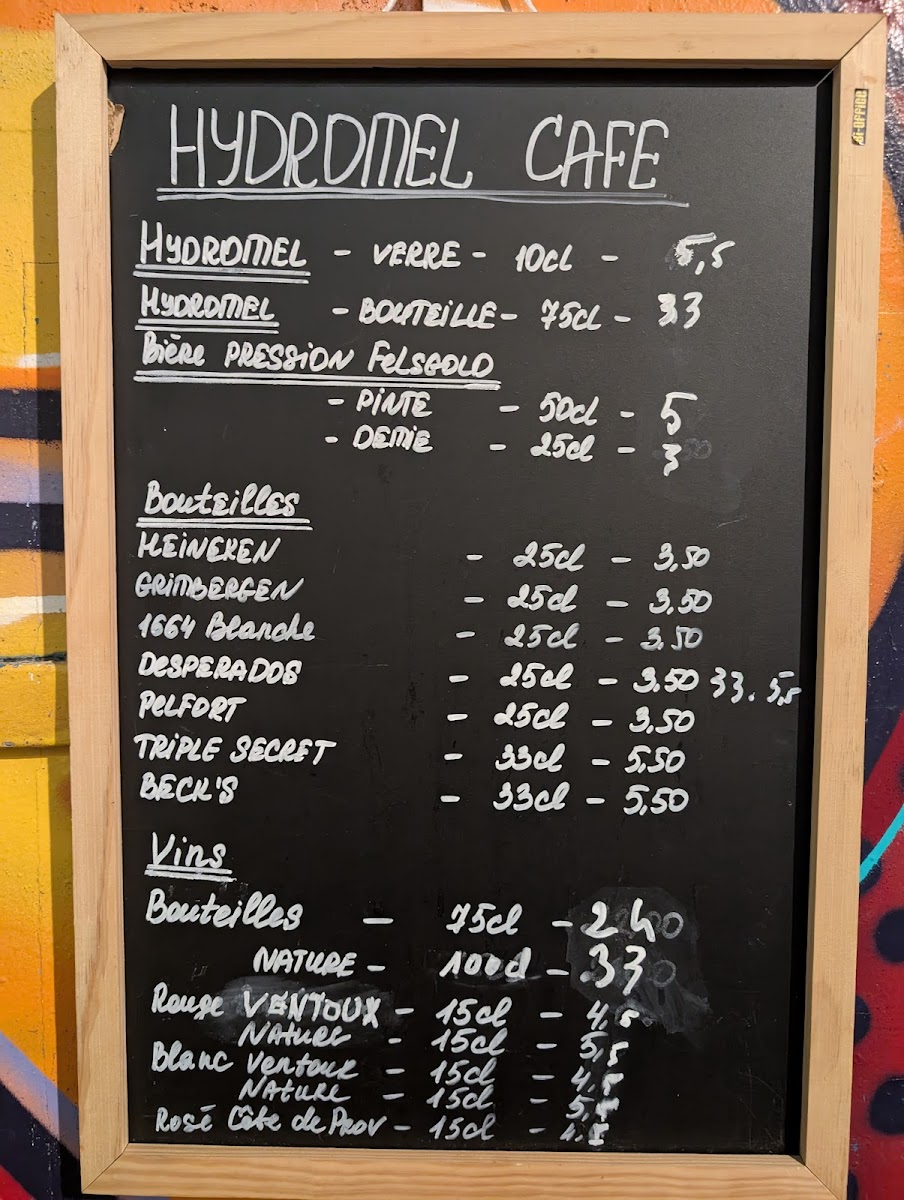 Bi-OFFICE
HYDROMEL CAFE
HYDROMEL - VERRE - 10cl - 5,5
HYDROMEL - BOUTEILLE - 75cl - 33
Bière PRESSION FELSGOLD
- PINTE - 50cl - 5
- DEMIE - 25cl - 3
Bouteilles
HEINEKEN - 25cl - 3,50
GRIMBERGEN - 25cl - 3,50
1664 Blanche - 25cl - 3,50
DESPERADOS - 25cl - 3.50 33. 5,5
PELFORT - 25cl - 3,50
TRIPLE SECRET - 33cl - 5,50
BECK'S - 33cl - 5,50
Vins
Bouteilles - 75cl - 24
NATURE - 100cl - 33
Rouge VENTOUX - 15cl - 4,5
NATURE - 15cl - 5,5
Blanc Ventoux - 15cl - 4,5
NATURE - 15cl - 5,5
Rosé Côte de Prov - 15cl - 4,5